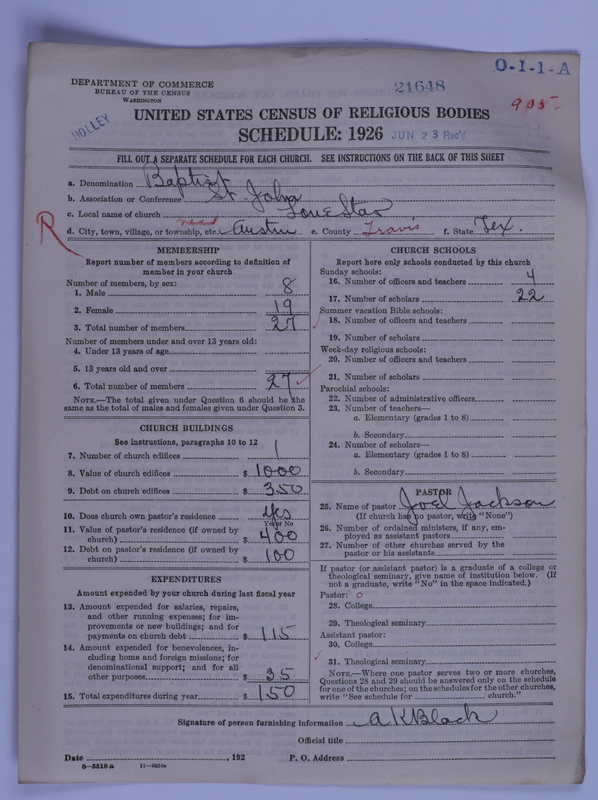 O-1-1-A
DEPARTMENT OF COMMERCE
BUREAU OF THE CENSUS
WASHINGTON
21648
905-
HOLLEY
UNITED STATES CENSUS OF RELIGIOUS BODIES
SCHEDULE: 1926 JUN 23 Rec'd
FILL OUT A SEPARATE SCHEDULE FOR EACH CHURCH. SEE INSTRUCTIONS ON THE BACK OF THIS SHEET
a. Denomination Baptist
b. Association or Conference St. John
c. Local name of church Lone Star
R
d. City, town, village, or township, etc. Austin e. County Travis f. State Tex.
MEMBERSHIP
Report number of members according to definition of
member in your church
Number of members, by sex:
1. Male 8
2. Female 19
3. Total number of members 27
Number of members under and over 13 years old:
4. Under 13 years of age
5. 13 years old and over
6. Total number of members 27
NOTE.—The total given under Question 6 should be the
same as the total of males and females given under Question 3.
CHURCH BUILDINGS
See instructions, paragraphs 10 to 12
7. Number of church edifices 1
8. Value of church edifices $ 1000
9. Debt on church edifices $ 350
10. Does church own pastor's residence yes
Yes or No
11. Value of pastor's residence (if owned by
church) $ 400
12. Debt on pastor's residence (if owned by
church) $ 100
EXPENDITURES
Amount expended by your church during last fiscal year
13. Amount expended for salaries, repairs,
and other running expenses; for im-
provements or new buildings; and for
payments on church debt $ 115
14. Amount expended for benevolences, in-
cluding home and foreign missions; for
denominational support; and for all
other purposes $ 35
15. Total expenditures during year $ 150
CHURCH SCHOOLS
Report here only schools conducted by this church
Sunday schools:
16. Number of officers and teachers 4
17. Number of scholars 22
Summer vacation Bible schools:
18. Number of officers and teachers
19. Number of scholars
Week-day religious schools:
20. Number of officers and teachers
21. Number of scholars
Parochial schools:
22. Number of administrative officers
23. Number of teachers—
a. Elementary (grades 1 to 8)
b. Secondary
24. Number of scholars—
a. Elementary (grades 1 to 8)
b. Secondary
PASTOR
25. Name of pastor Joel Jackson
(If church has no pastor, write "None")
26. Number of ordained ministers, if any, em-
ployed as assistant pastors
27. Number of other churches served by the
pastor or his assistants
If pastor (or assistant pastor) is a graduate of a college or
theological seminary, give name of institution below. (If
not a graduate, write "No" in the space indicated.)
Pastor: O
28. College
29. Theological seminary
Assistant pastor:
30. College
31. Theological seminary
NOTE.—Where one pastor serves two or more churches,
Questions 28 and 29 should be answered only on the schedule
for one of the churches; on the schedules for the other churches,
write "See schedule for church."
Signature of person furnishing information A K Black
Official title
Date , 192 P. O. Address
8—5518 a 11—9034a